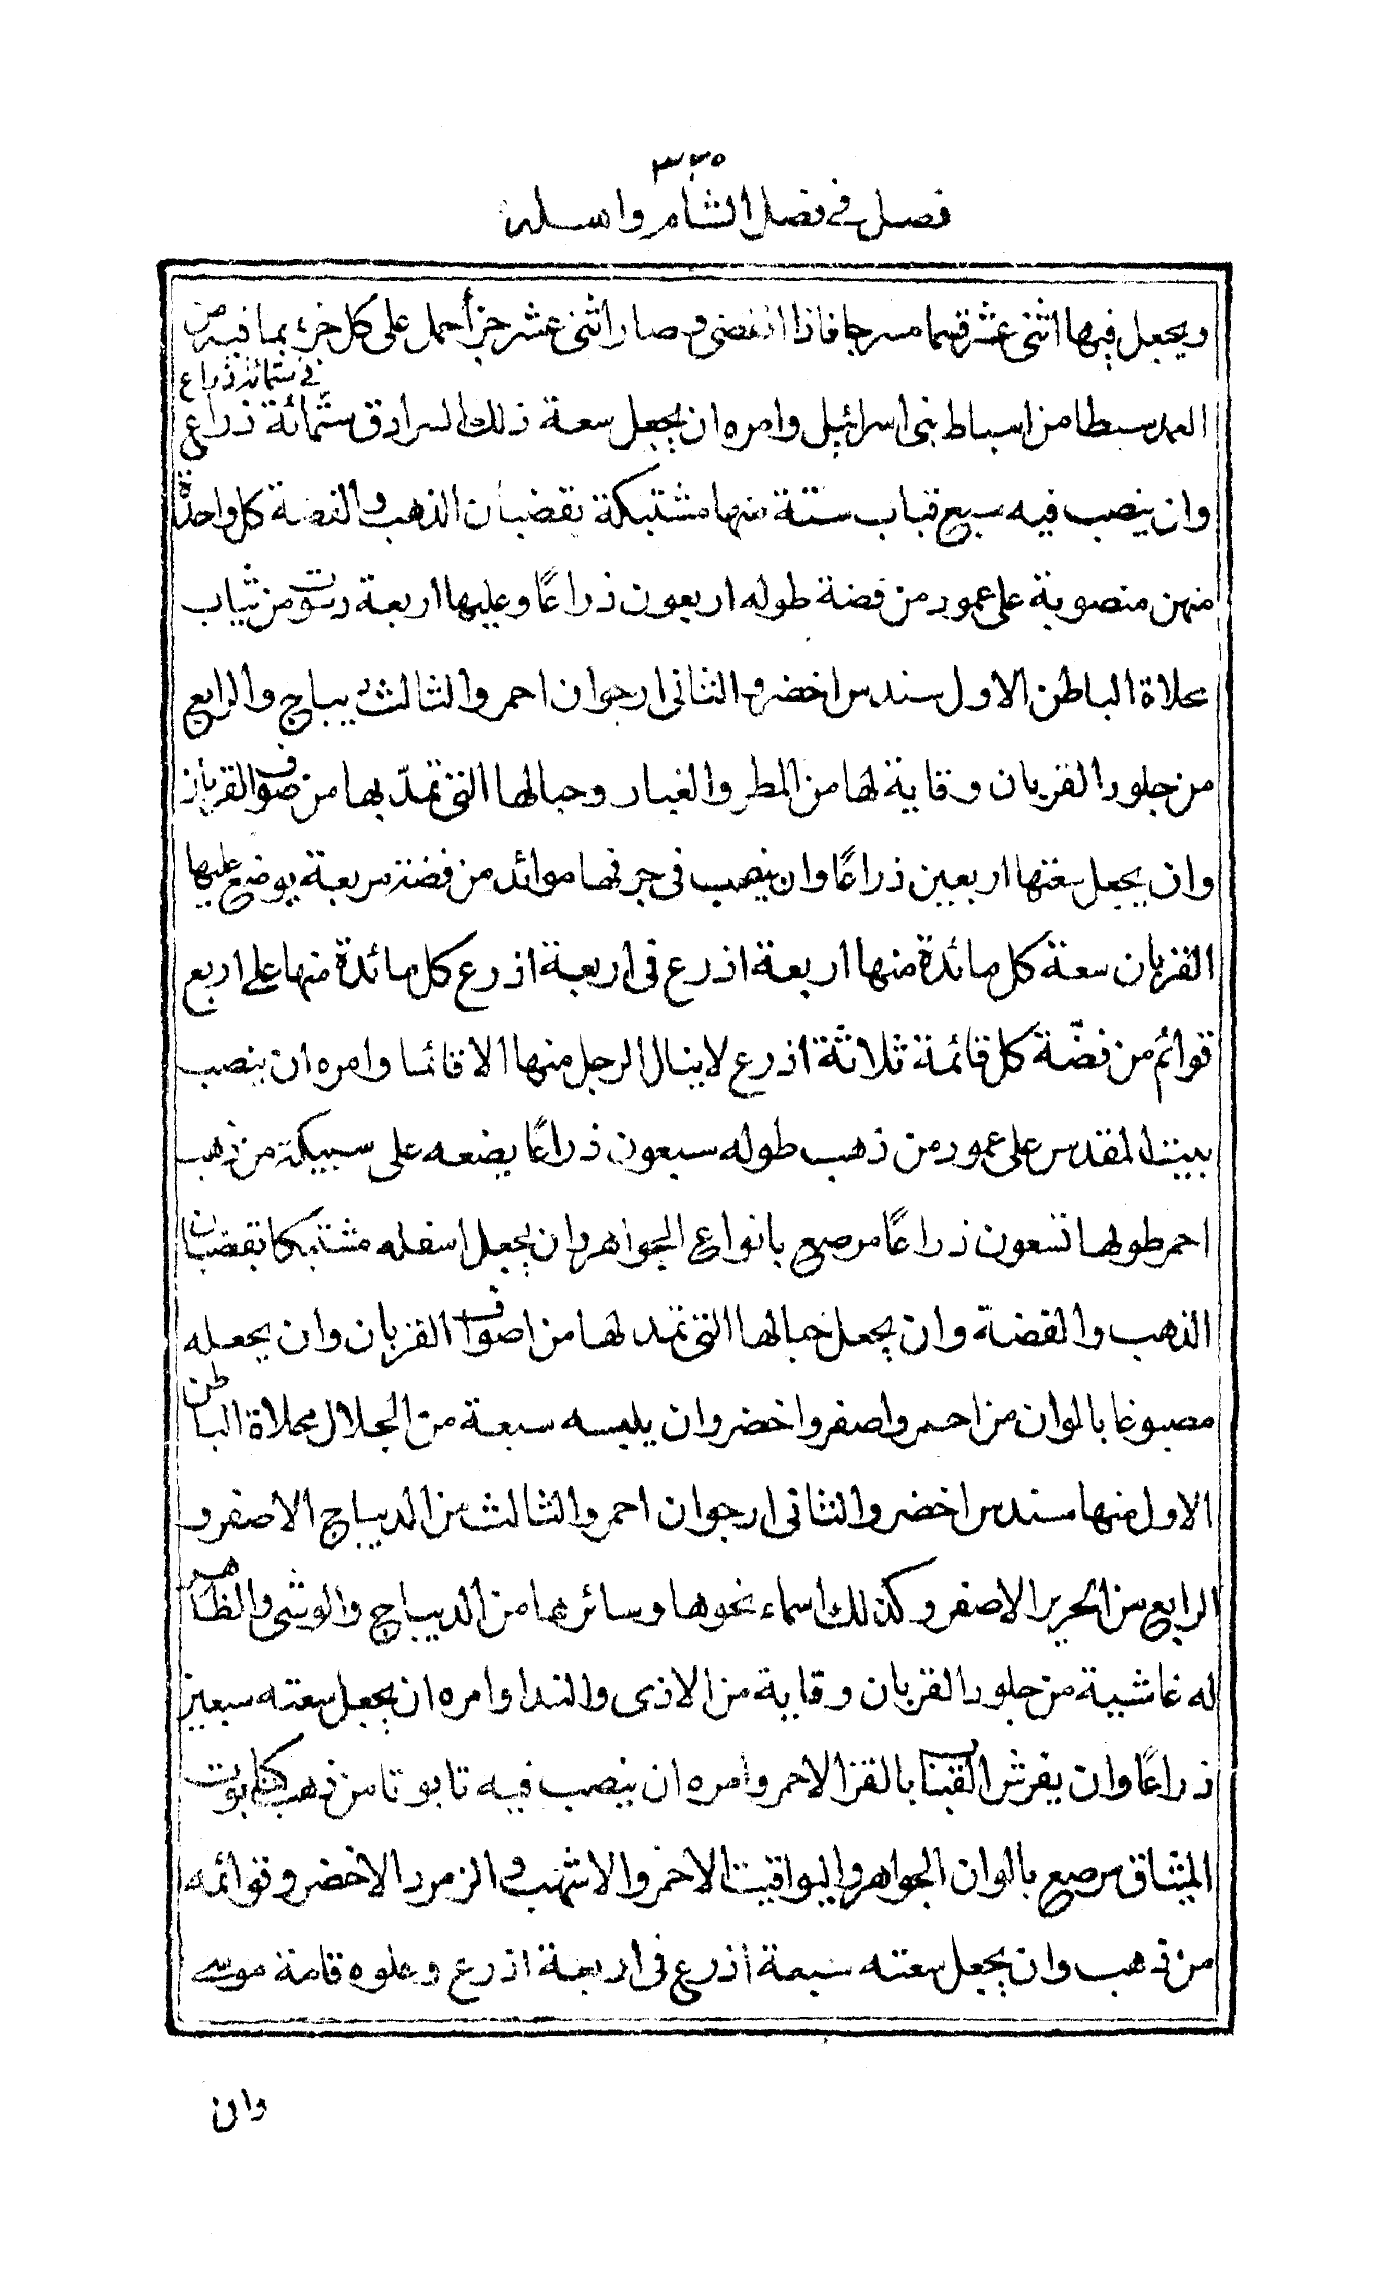 ٣٢٥
فصل في فضل الشام واهله
ويجعل فيها اثنى عشر قيما مسرجا فاذا انفضى وصار اثنى عشر جزأ حمل على كل جزء بما فيه من
العمد سبطا من اسباط بنى اسرائيل وامره ان يجعل سعة ذلك السرادق ستمائة ذراع
في ستمائة ذراع
وان ينصب فيه سبع قباب ستة منها مشتبكة بقضبان الذهب والفضة كل واحدة
منهن منصوبة على عمود من فضة طوله اربعون ذراعًا وعليها اربعة دسوت من ثياب
محلاة الباطن الاول سندس اخضر والثانى ارجوان احمر والثالث ديباج والرابع
من جلود القربان وقاية لها من المطر والغبار وحبالها التى تمدّ بها من صوف القربان
وان يجعل سعتها اربعين ذراعًا وان ينصب في جوفها موائد من فضة مربعة يوضع عليها
القربان سعة كل مائدة منها اربعة اذرع فى اربعة اذرع كل مائدة منها على اربع
قوائم من فضّة كل قائمة ثلاثة اذرع لا ينال الرجل منها الا قائما وامره ان ينصب
بيت المقدس على عمود من ذهب طوله سبعون ذراعًا يضعه على سبيكة من ذهب
احمر طولها تسعون ذراعًا مرصع بانواع الجواهر وان يجعل اسفله مشتبكا بقضبان
الذهب والفضة وان يجعل حبالها التى تمد لها من اصواف القربان وان يجعله
مصبوغا بالوان من احمر واصفر واخضر وان يلبسه سبعة من الجلال محلاة الباطن
الاول منها سندس اخضر والثانى ارجوان احمر والثالث من الديباج الاصفر و
الرابع من الحرير الاصفر وكذلك اسماء نحوها وسائرها من الديباج والوشى والظاهر
له غاشية من جلود القربان وقاية من الاذى والندا وامره ان يجعل سعته سبعين
ذراعًا وان يفرش القباب بالقز الاحمر وامره ان ينصب فيه تابوتا من ذهب كتابوت
الميثاق مرصع بالوان الجواهر واليواقيت الاحمر والاشهب والزمرد الاخضر وقوائمه
من ذهب وان يجعل سعته سبعة اذرع فى اربعة اذرع وعلوه قامة موسى
وان